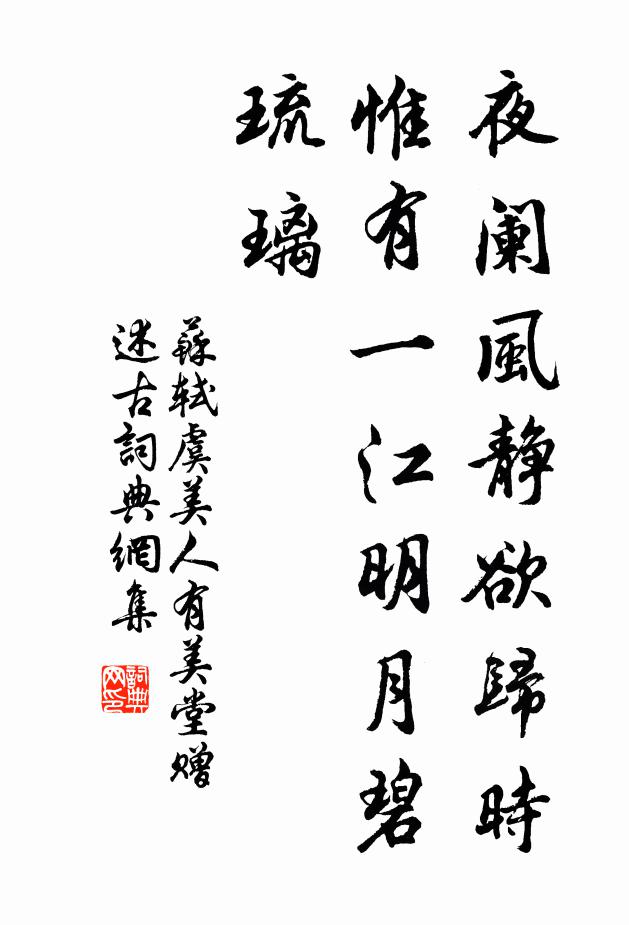 夜阑風静欲歸時
惟有一江明月碧
琉璃
蘇軾虞美人有美堂赠
述古詞典網集
詞典
网印